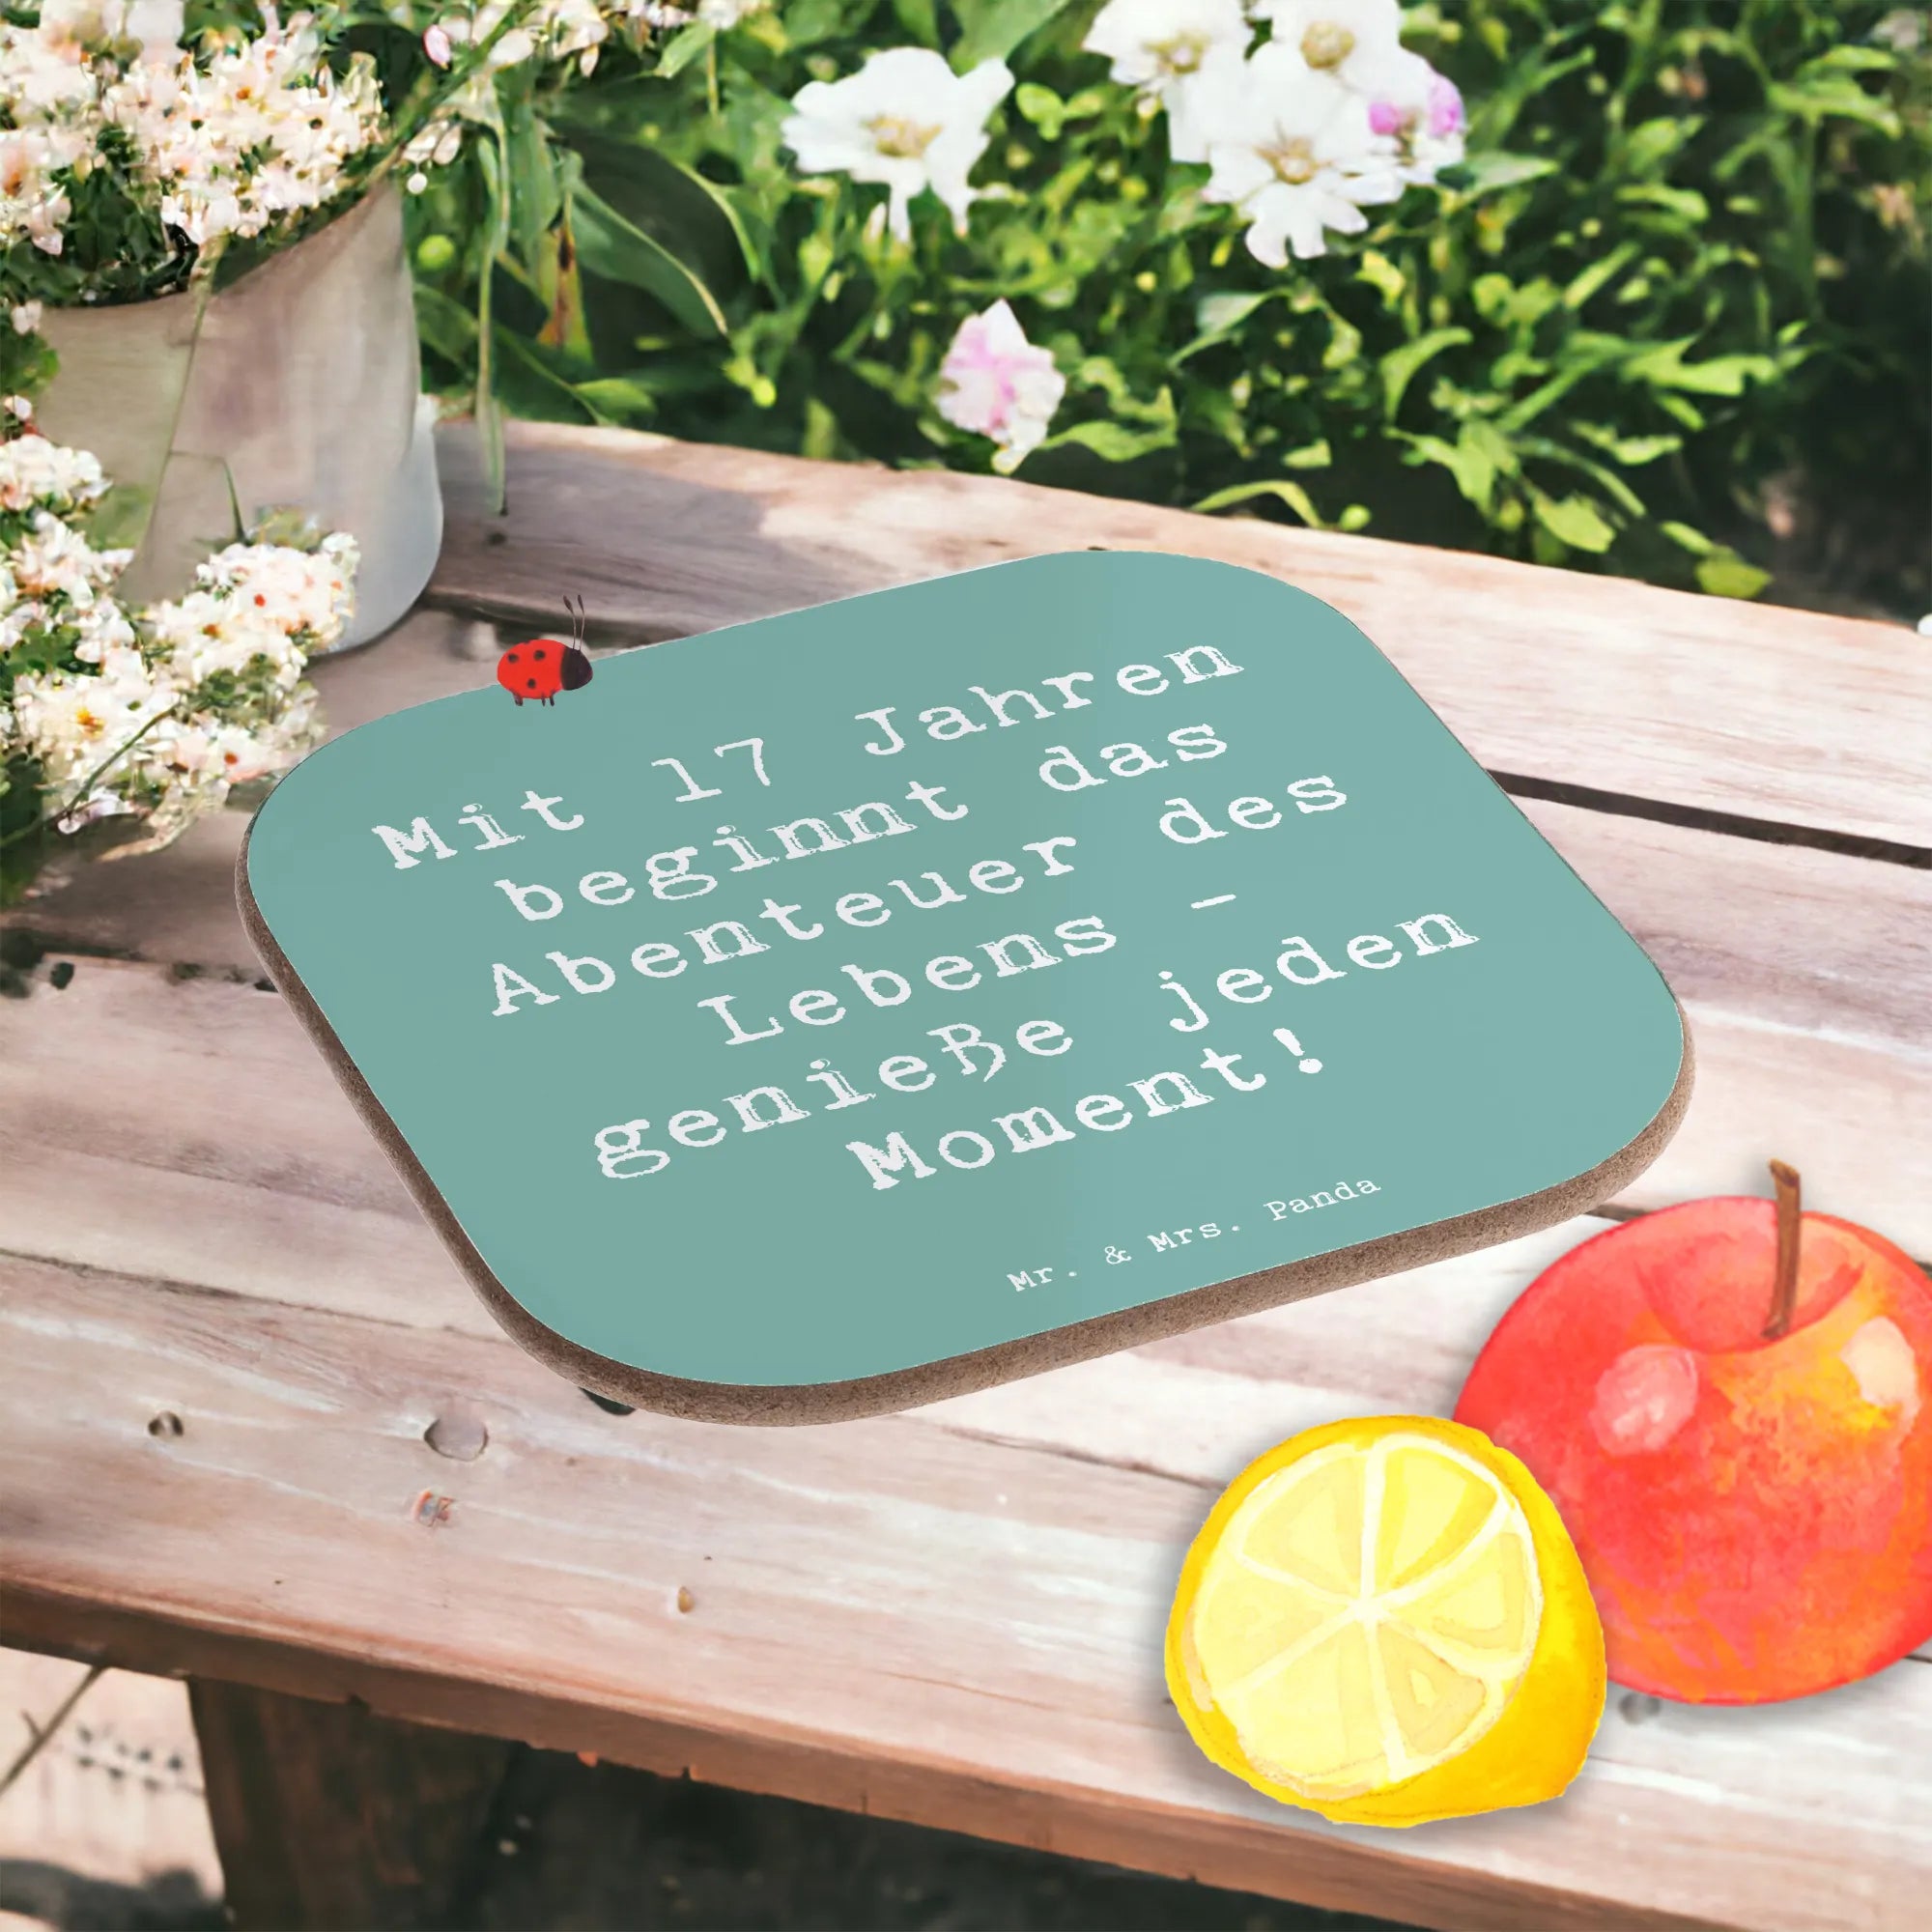 Mit 17 Jahren
beginnt das
Abenteuer des
Lebens -
genieße jeden
Moment!
Mr. & Mrs. Panda